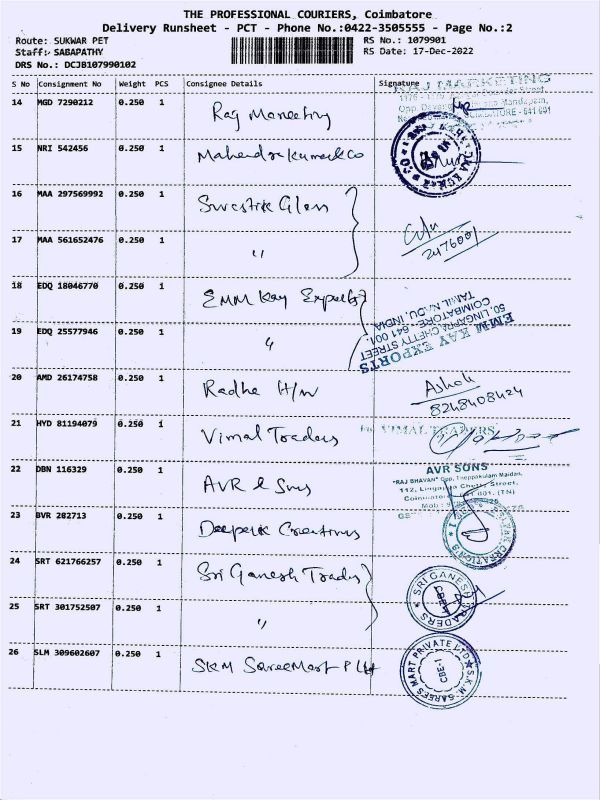 THE PROFESSIONAL COURIERS, Coimbatore
Delivery Runsheet - PCT - Phone No.:0422-3505555 - Page No.:2
Route: SUKWAR PET
RS No.: 1079901
Staff: SABAPATHY
RS Date: 17-Dec-2022
DRS No.: DCJB107990102
S No Consignment No Weight PCS Consignee Details Signature
RAJ MARKETING
14 MGD 7290212 0.250 1 Raj Marketing
COIMBATORE - 641 001
15 NRI 542456 0.250 1 Mahendra kumar & co
16 MAA 297569992 0.250 1 Swastik Glass
17 MAA 561652476 0.250 1 "
2476001
18 EDQ 18046770 0.250 1 EMM Kay Exports
EMM KAY EXPORTS
50, LINGAPPA CHETTY STREET
COIMBATORE - 641 001.
TAMIL NADU, INDIA
19 EDQ 25577946 0.250 1 "
20 AMD 26174758 0.250 1 Radhe H/w Ashok
8248408424
21 HYD 81194079 0.250 1 Vimal Traders
For VIMAL TRADERS
22 DBN 116329 0.250 1 AVR & Sons
AVR SONS
"RAJ BHAVAN" Opp. Theppakulam Maidan,
112, Lingappa Chetty Street,
Coimbatore 641 001. (TN)
23 BVR 282713 0.250 1 Deepak Creations
24 SRT 621766257 0.250 1 Sri Ganesh Traders
SRI GANESH TRADERS
CBE-1
25 SRT 301752507 0.250 1 "
26 SLM 309602607 0.250 1 SKM SareeMart P Ltd
S.K.M. SAREES MART PRIVATE LTD
CBE-1